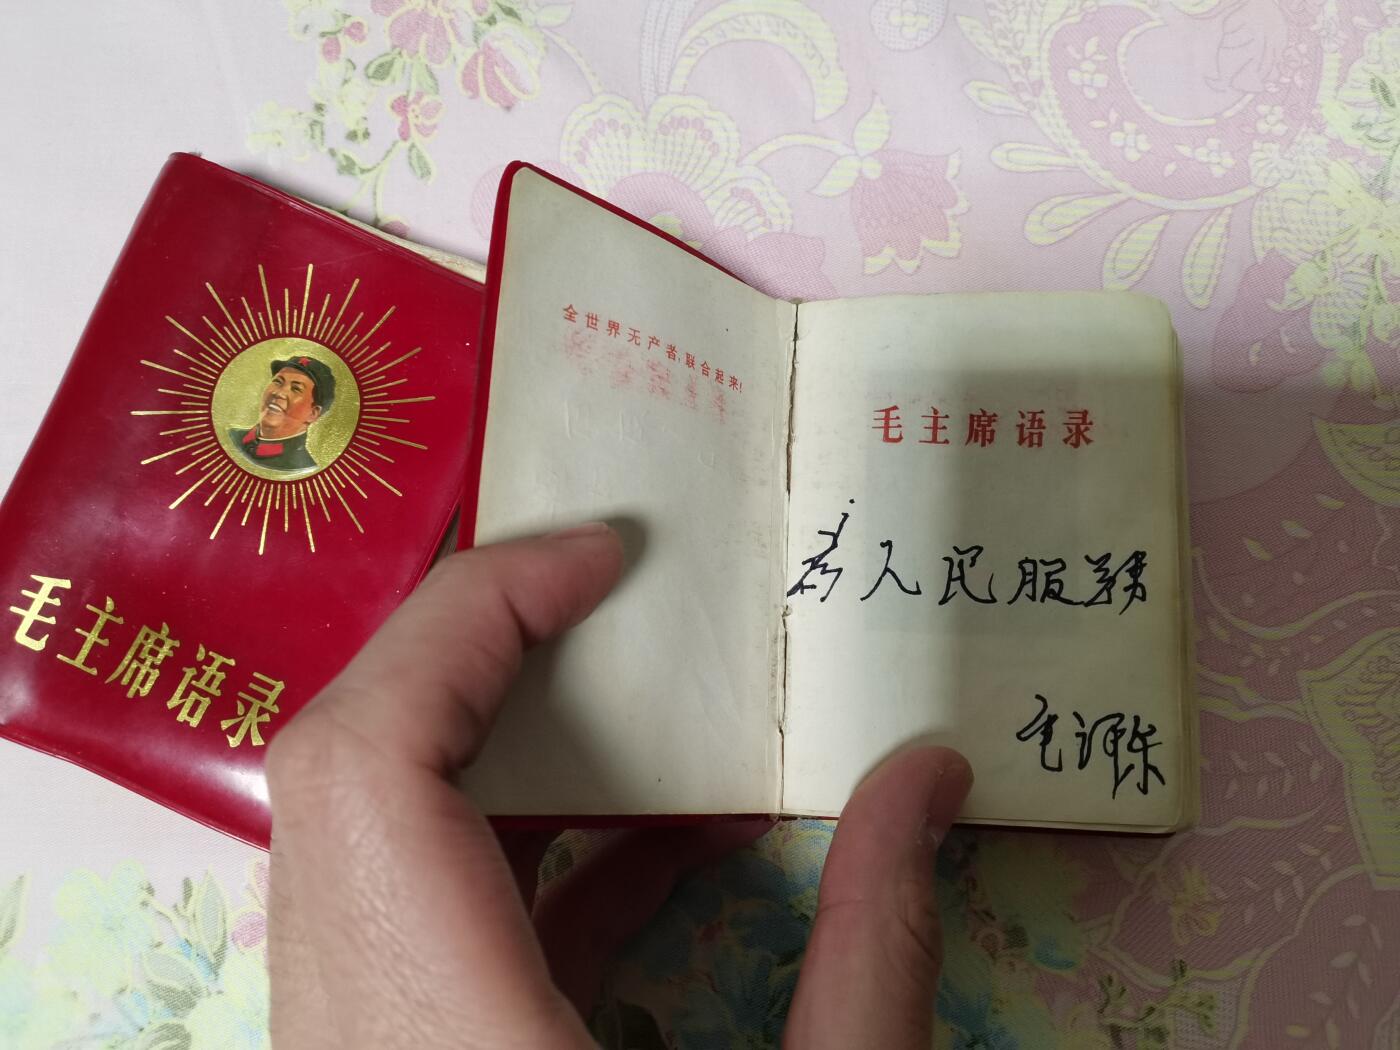 毛主席语录
全世界无产者,联合起来!
毛主席语录
为人民服務
毛泽东